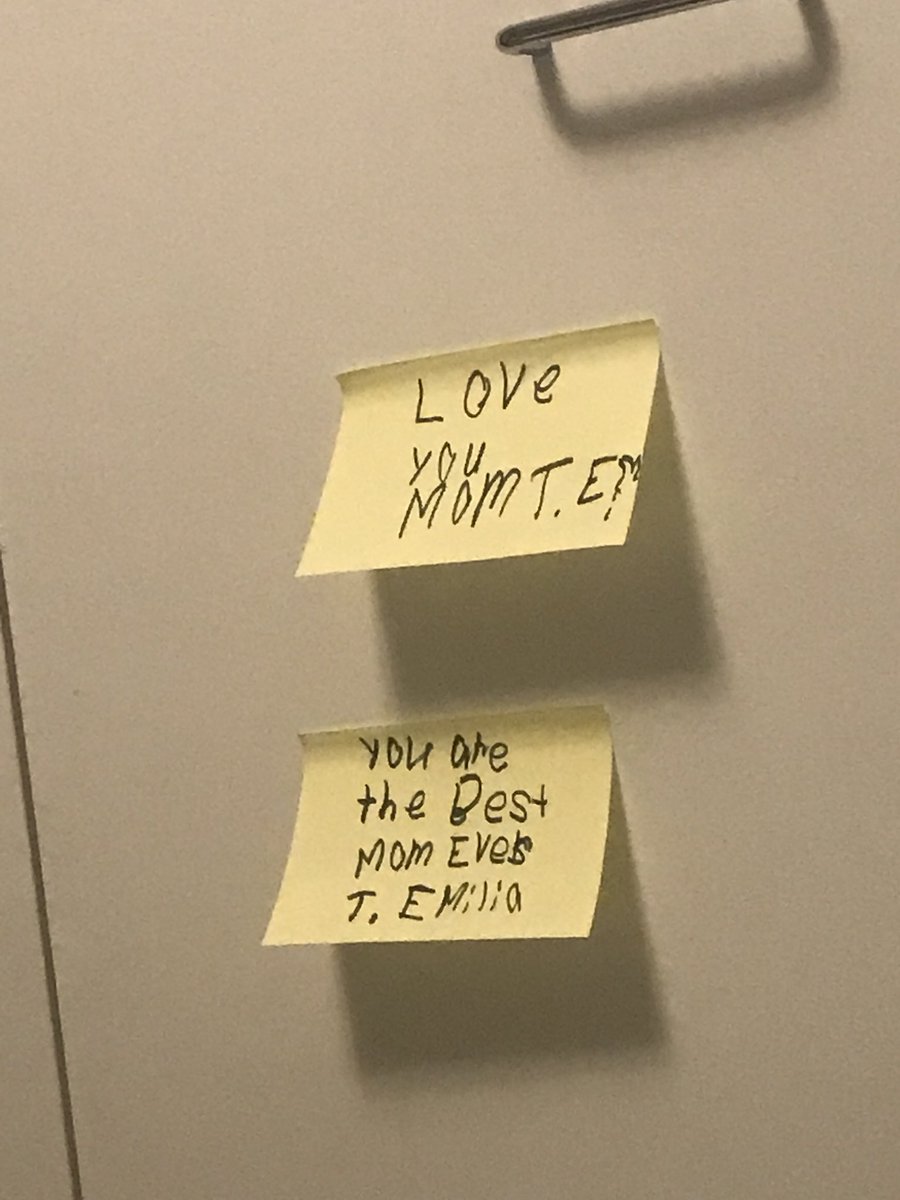 LOVe
you
MOM T. E
you are
the Best
Mom Ever
T. EMilia